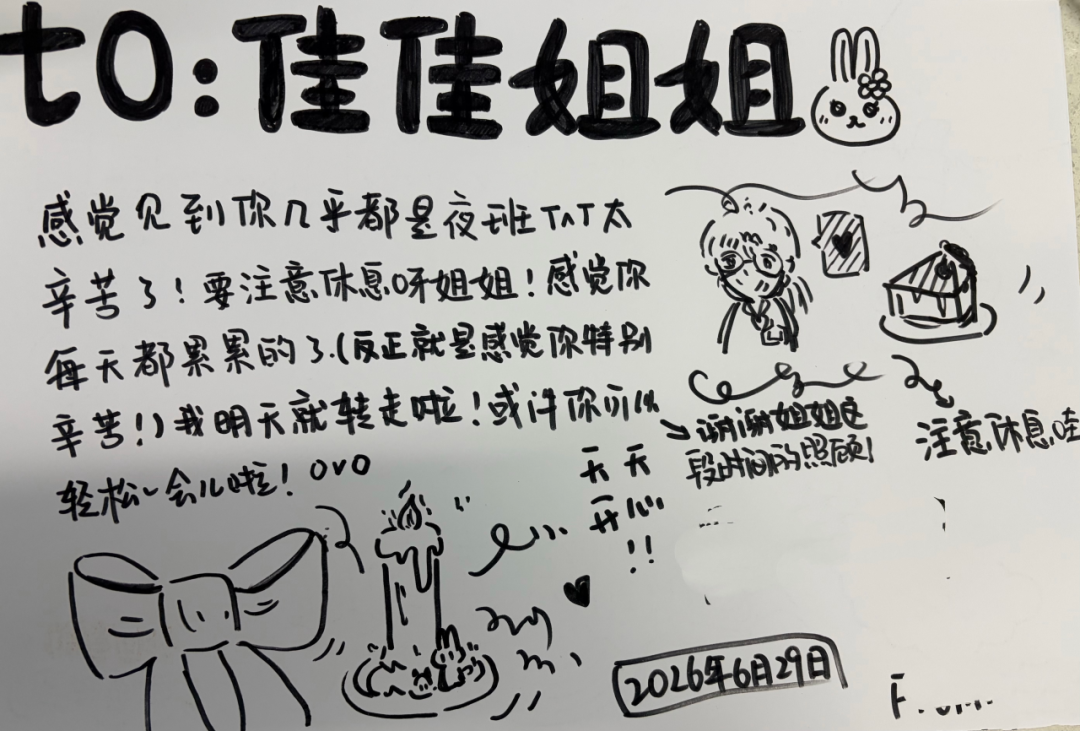 to:佳佳姐姐
感觉见到你几乎都是夜班TAT太
辛苦了!要注意休息呀姐姐!感觉你
每天都累累的了.(反正就是感觉你特别
辛苦!)我明天就转走啦!或许你可以
轻松一会儿啦!OVO
天天
开心
!!
谢谢姐姐这
段时间的照顾!
注意休息哇
2026年6月29日